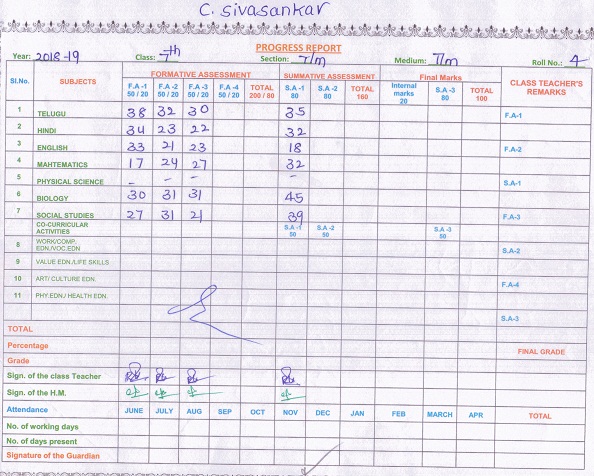 C. Sivasankar
PROGRESS REPORT
Year: 2018-19 Class: 7th Section: T/m Medium: T/m Roll No.: 4
Sl.No. SUBJECTS FORMATIVE ASSESSMENT SUMMATIVE ASSESSMENT Final Marks CLASS TEACHER'S REMARKS
F.A -1 50 / 20 F.A -2 50 / 20 F.A -3 50 / 20 F.A -4 50 / 20 TOTAL 200 / 80 S.A - 1 80 S.A - 2 80 TOTAL 160 Internal marks 20 S.A -3 80 TOTAL 100
1 TELUGU 38 32 30 35 F.A-1
2 HINDI 34 23 22 32
3 ENGLISH 33 21 23 18 F.A-2
4 MAHTEMATICS 17 24 27 32
5 PHYSICAL SCIENCE - - - - S.A-1
6 BIOLOGY 30 31 31 45
7 SOCIAL STUDIES 27 31 21 39 F.A-3
CO-CURRICULAR ACTIVITIES S.A -1 50 S.A -2 50 S.A -3 50
8 WORK/COMP. EDN./VOC.EDN S.A-2
9 VALUE EDN./LIFE SKILLS
10 ART/ CULTURE EDN. F.A-4
11 PHY.EDN./ HEALTH EDN.
S.A-3
TOTAL
Percentage FINAL GRADE
Grade
Sign. of the class Teacher
Sign. of the H.M.
Attendance JUNE JULY AUG SEP OCT NOV DEC JAN FEB MARCH APR TOTAL
No. of working days
No. of days present
Signature of the Guardian